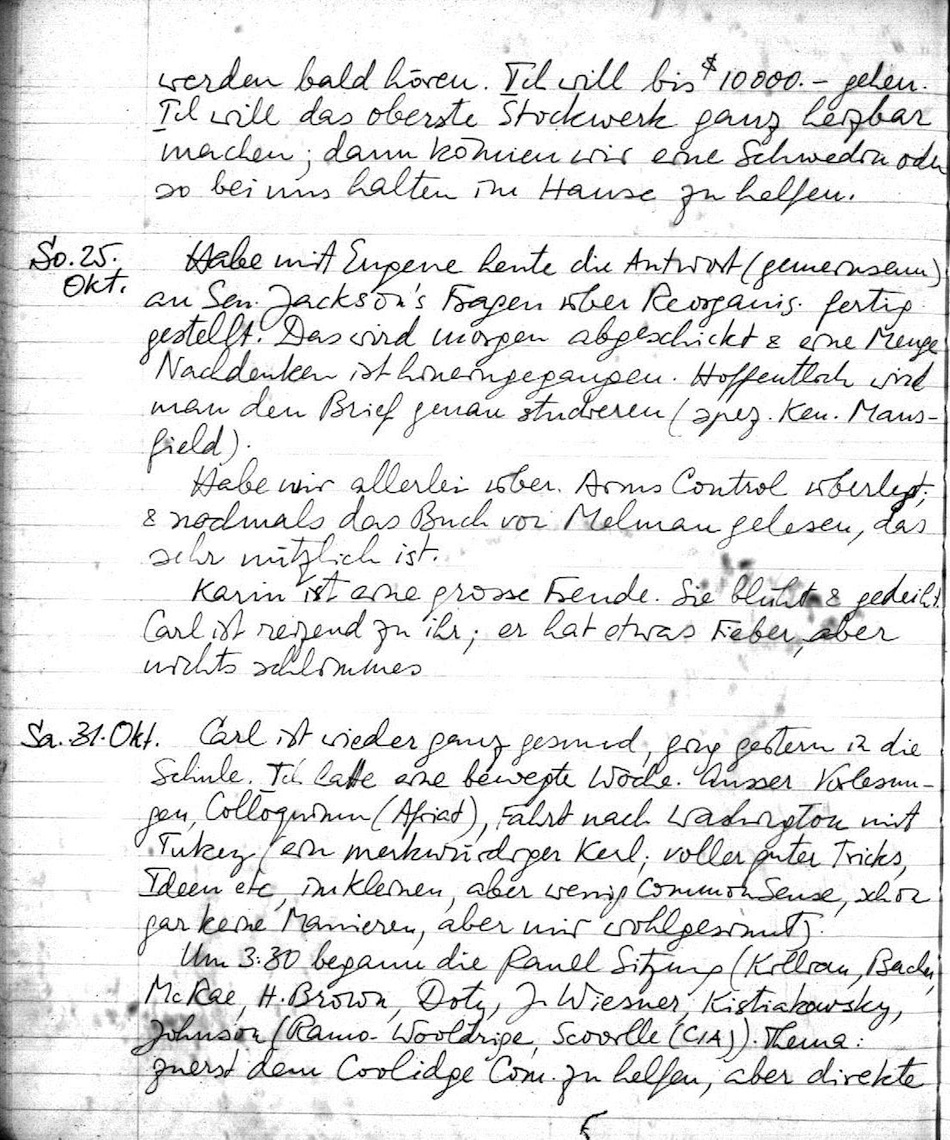 werden bald hören. Ich will bis $10000.- gehen.
Ich will das oberste Stockwerk ganz heizbar
machen; dann können wir eine Schwedin oder
so bei uns halten im Hause zu helfen.
So. 25. Okt.
Habe mit Eugene heute die Antwort (gemeinsam)
an Sen. Jackson's Fragen über Reorganis. fertig
gestellt. Das wird morgen abgeschickt & eine Menge
Nachdenken ist hineingegangen. Hoffentlich wird
man den Brief genau studieren (spez. Ken. Mans-
field).
Habe mir allerlei über Arms Control überlegt,
& nochmals das Buch von Melman gelesen, das
sehr nützlich ist.
Karin ist eine grosse Freude. Sie blüht & gedeiht.
Carl ist reizend zu ihr; er hat etwas Fieber, aber
nichts schlimmes
Sa. 31. Okt.
Carl ist wieder ganz gesund, ging gestern in die
Schule. Ich hatte eine bewegte Woche. Ausser Vorlesun-
gen, Colloquium (Afriat), Fahrt nach Washington mit
Tukey (ein merkwürdiger Kerl; voller guter Tricks,
Ideen etc, im kleinen, aber wenig Common Sense, schon
gar keine Manieren, aber mir wohlgesinnt).
Um 3:30 begann die Panel Sitzung (Killian, Bacher,
McRae, H. Brown, Doty, J. Wiesner, Kistiakowsky,
Johnson (Ramo-Wooldrige, Scoville (CIA)). Thema:
zuerst dem Coolidge Com. zu helfen, aber direkte